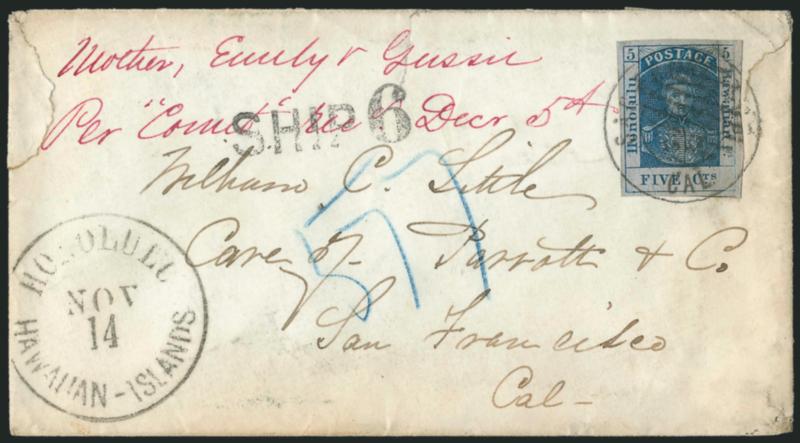 Mother, Emily & Gussie
Per "Comet" rec'd Decr 5th
SHIP 6
5 POSTAGE 5
Honolulu
Hawaiian Is.
FIVE Cts
CAL.
William C. Little
Care of Parrott & Co.
San Francisco
Cal-
57
HONOLULU
NOV
14
HAWAIIAN-ISLANDS